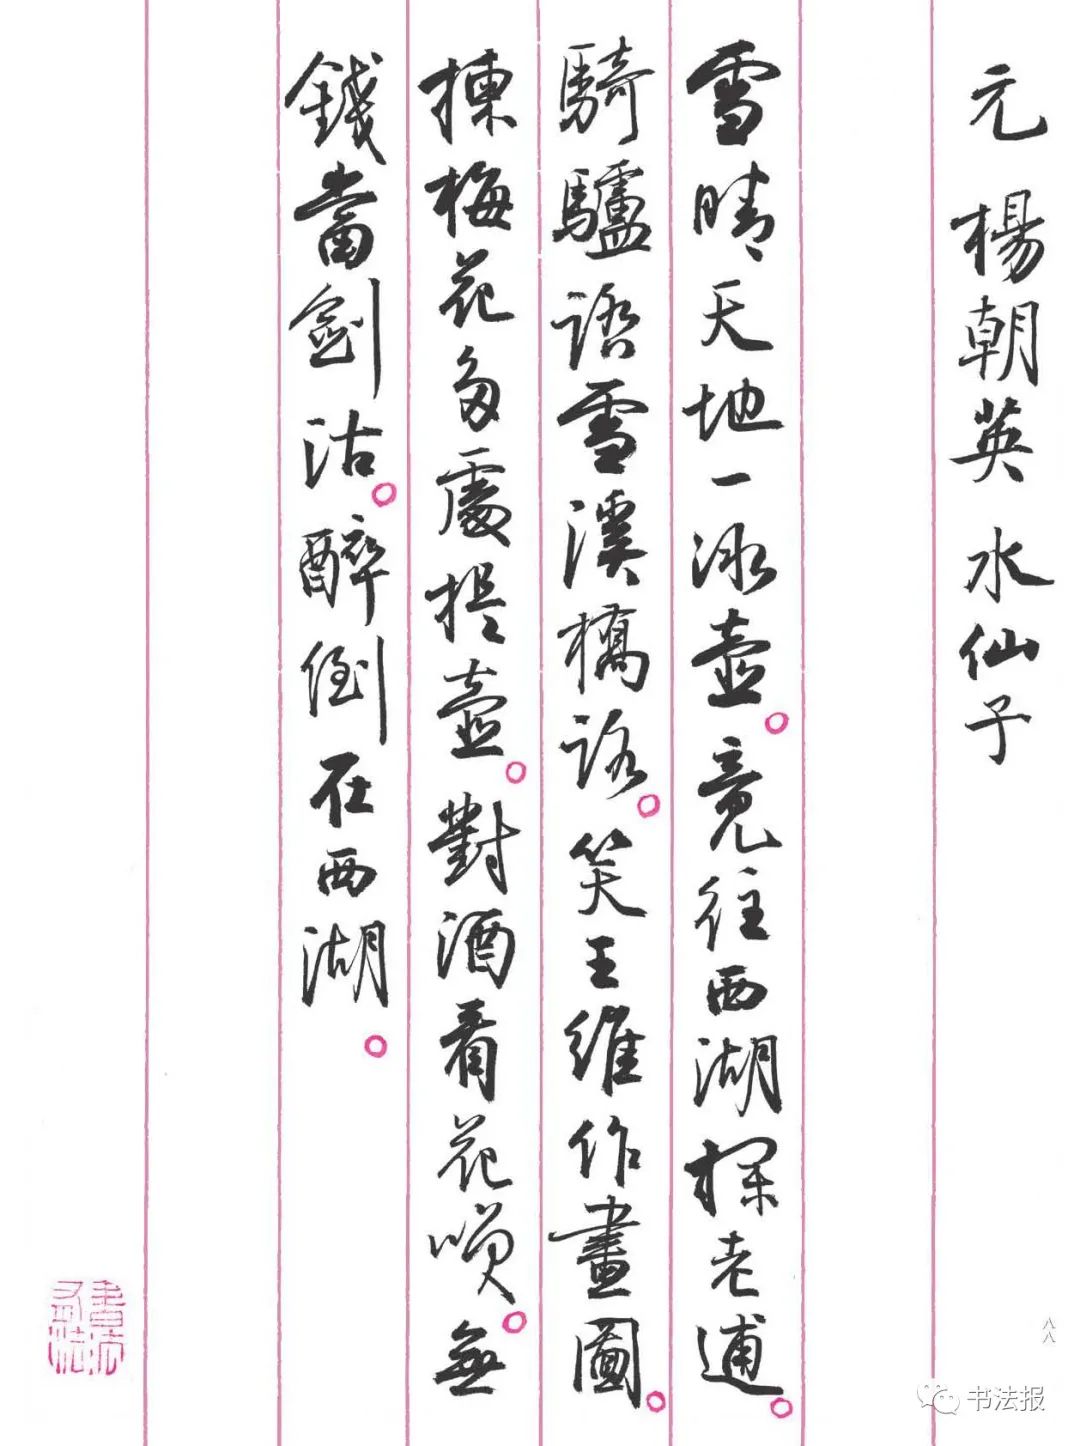 元 楊朝英 水仙子
雪晴天地一冰壺。竟往西湖探老逋。
騎驢踏雪溪橋路。笑王維作畫圖。
揀梅花多處提壺。對酒看花咲。無
錢當劍沽。醉倒在西湖。
八八
书法报